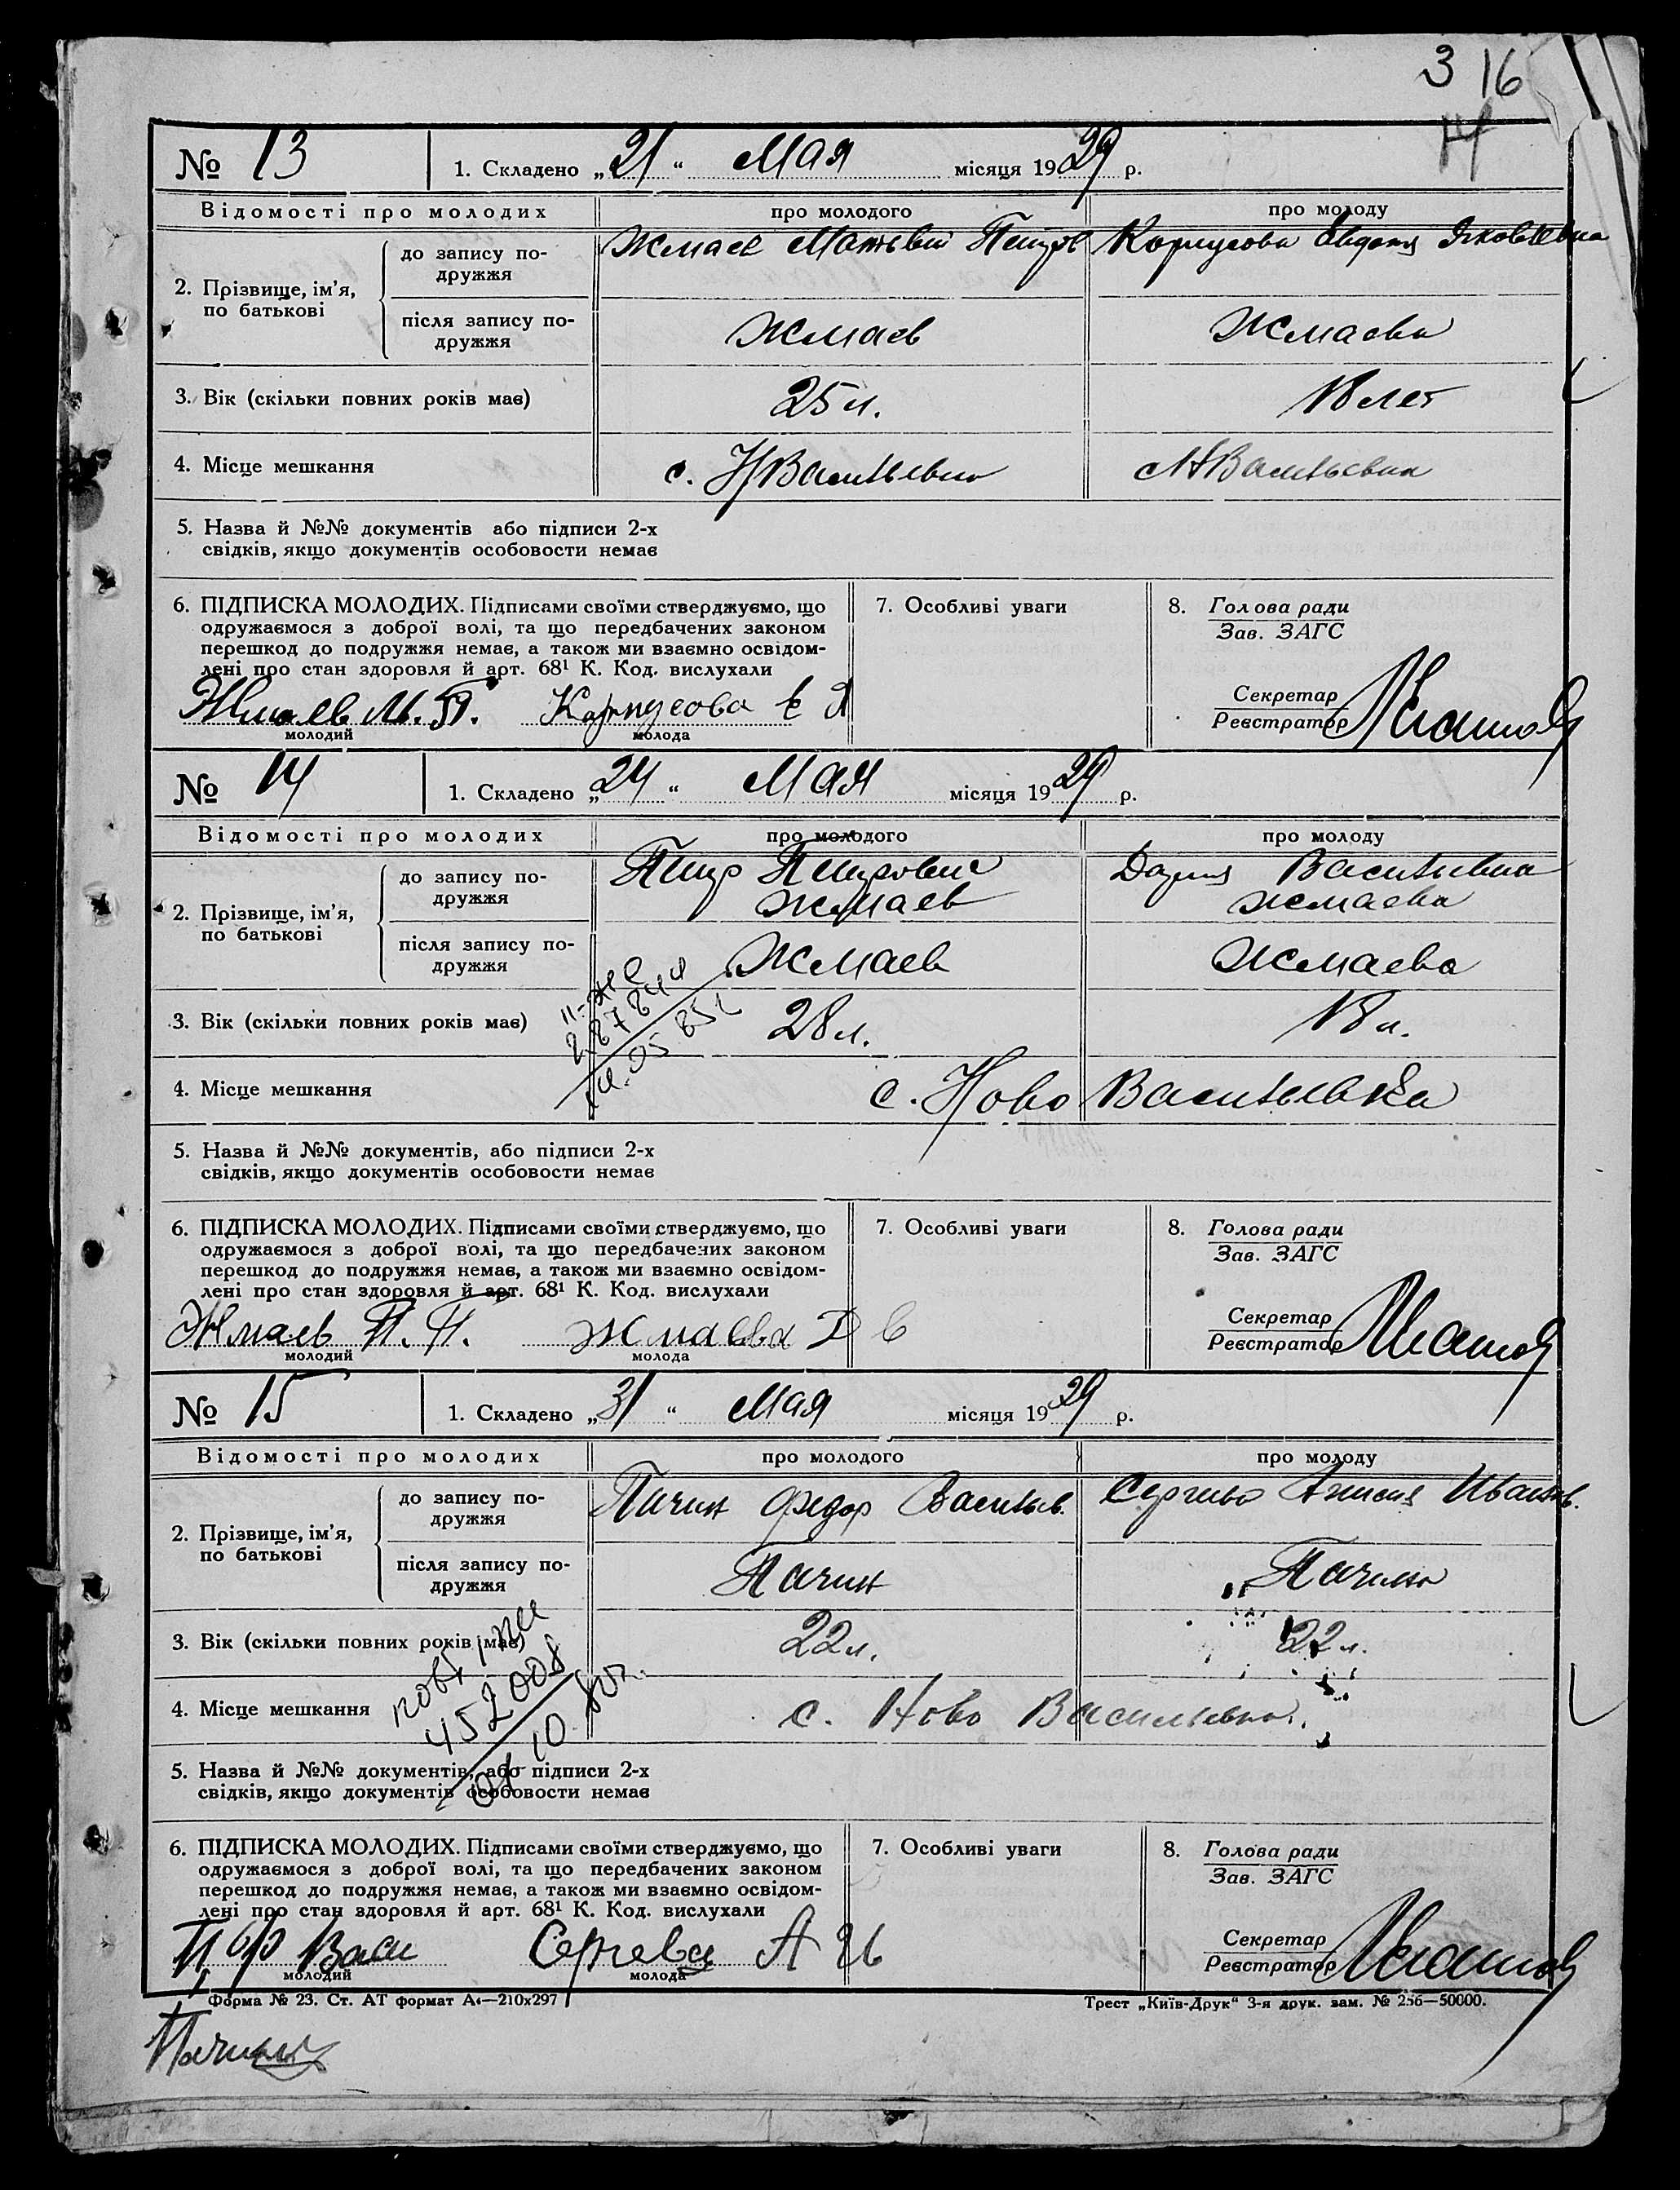 3 16
14
№ 13 1. Складено „21“ Мая місяця 1929 р.
Відомості про молодих про молодого про молоду
до запису по-
дружжя
Жмаев Матвей Петров Корпусова Евдокия Яковлевна
2. Прізвище, ім'я,
по батькові
після запису по-
дружжя
Жмаев Жмаева
3. Вік (скільки повних років має) 25 л. 18 лет
4. Місце мешкання с. Н Васильевка с Н Васильевка
5. Назва й №№ документів або підписи 2-х
свідків, якщо документів особовости немає
6. ПІДПИСКА МОЛОДИХ. Підписами своїми стверджуємо, що
одружаємося з доброї волі, та що передбачених законом
перешкод до подружжя немає, а також ми взаємно освідом-
лені про стан здоровля й арт. 68¹ К. Код. вислухали
Жмаев М. П. Корпусова Е Я
молодий молода
7. Особливі уваги
8. Голова ради
Зав. ЗАГС
Секретар
Реєстратор
№ 14 1. Складено „24“ Мая місяця 1929 р.
Відомості про молодих про молодого про молоду
до запису по-
дружжя
Петр Петрович Дария Васильевна
Жмаев Жмаева
2. Прізвище, ім'я,
по батькові
після запису по-
дружжя
Жмаев Жмаева
3. Вік (скільки повних років має) 28 л. 18 л.
4. Місце мешкання с. Ново Васильевка
5. Назва й №№ документів, або підписи 2-х
свідків, якщо документів особовости немає
6. ПІДПИСКА МОЛОДИХ. Підписами своїми стверджуємо, що
одружаємося з доброї волі, та що передбачених законом
перешкод до подружжя немає, а також ми взаємно освідом-
лені про стан здоровля й арт. 68¹ К. Код. вислухали
Жмаев П. П. Жмаева Д В
молодий молода
7. Особливі уваги
8. Голова ради
Зав. ЗАГС
Секретар
Реєстратор
№ 15 1. Складено „31“ Мая місяця 1929 р.
Відомості про молодих про молодого про молоду
до запису по-
дружжя
Пачин Федор Васильев. Сергеева Анисия Иванов.
2. Прізвище, ім'я,
по батькові
після запису по-
дружжя
Пачин Пачина
3. Вік (скільки повних років має) 22 л. 22 л.
452008
4. Місце мешкання с. Ново Васильевка.
5. Назва й №№ документів, або підписи 2-х
свідків, якщо документів особовости немає
6. ПІДПИСКА МОЛОДИХ. Підписами своїми стверджуємо, що
одружаємося з доброї волі, та що передбачених законом
перешкод до подружжя немає, а також ми взаємно освідом-
лені про стан здоровля й арт. 68¹ К. Код. вислухали
Васи Сергева А И
молодий молода
7. Особливі уваги
8. Голова ради
Зав. ЗАГС
Секретар
Реєстратор
Форма № 23. Ст. АТ формат А₄—210x297 Трест „Київ-Друк“ 3-я друк. зам. № 256—50000.